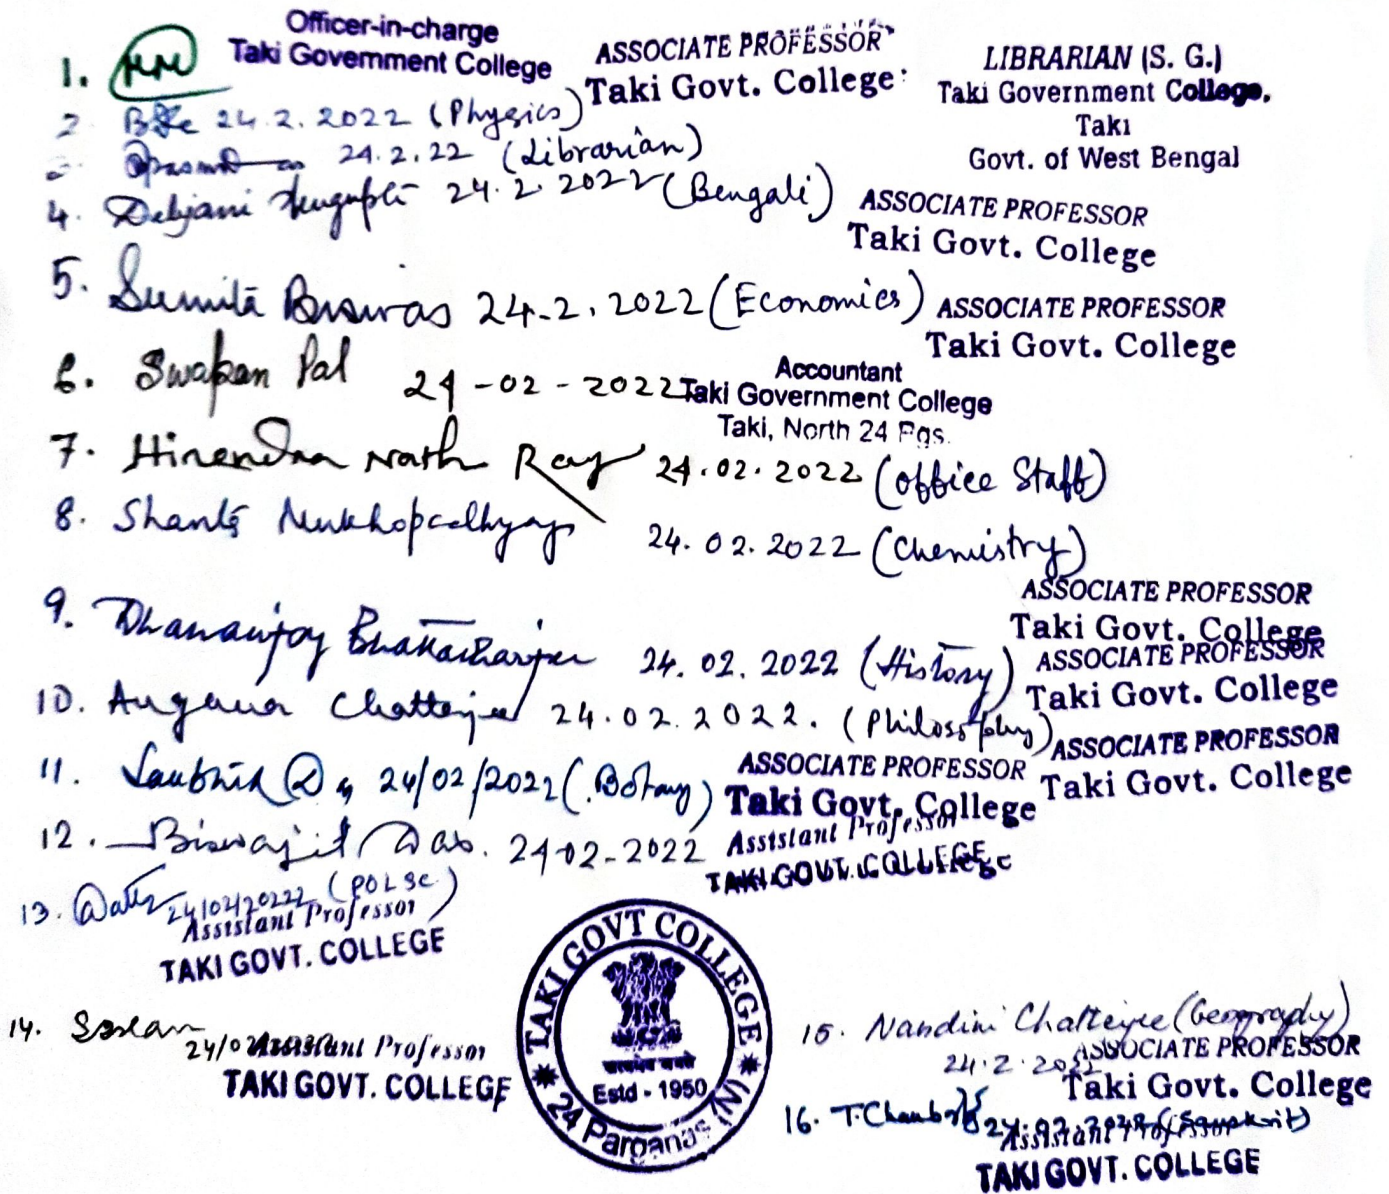 Officer-in-charge
Taki Government College
ASSOCIATE PROFESSOR
Taki Govt. College
LIBRARIAN (S. G.)
Taki Government College.
Taki
Govt. of West Bengal
1.
2. 24.2.2022 (Physics)
24.2.22 (Librarian)
4. Debjani Sengupta 24.2.2022 (Bengali)
ASSOCIATE PROFESSOR
Taki Govt. College
5. Sumita Biswas 24.2.2022 (Economics)
ASSOCIATE PROFESSOR
Taki Govt. College
6. Swapan Pal 24-02-2022
Accountant
Taki Government College
Taki, North 24 Pgs.
7. Hirendra Nath Ray 24.02.2022 (office Staff)
8. Shanta Mukhopadhyay 24.02.2022 (Chemistry)
ASSOCIATE PROFESSOR
Taki Govt. College
9. Dhananjoy Bhattacharjee 24.02.2022 (History)
ASSOCIATE PROFESSOR
Taki Govt. College
10. Angana Chatterjee 24.02.2022. (Philosophy)
ASSOCIATE PROFESSOR
Taki Govt. College
11. 24/02/2022 (Botany)
ASSOCIATE PROFESSOR
Taki Govt. College
12. Biswajit Das. 24-02-2022
Assistant Professor
TAKI GOVT. COLLEGE
13. 24/02/2022 (POL SC)
Assistant Professor
TAKI GOVT. COLLEGE
14.
Assistant Professor
TAKI GOVT. COLLEGE
TAKI GOVT COLLEGE (N) 24 Parganas
सत्यमेव जयते
Estd - 1950
15. Nandini Chatterjee (Geography)
24.2.2022
ASSOCIATE PROFESSOR
Taki Govt. College
16. 24.02.2022 (Sanskrit)
Assistant Professor
TAKI GOVT. COLLEGE